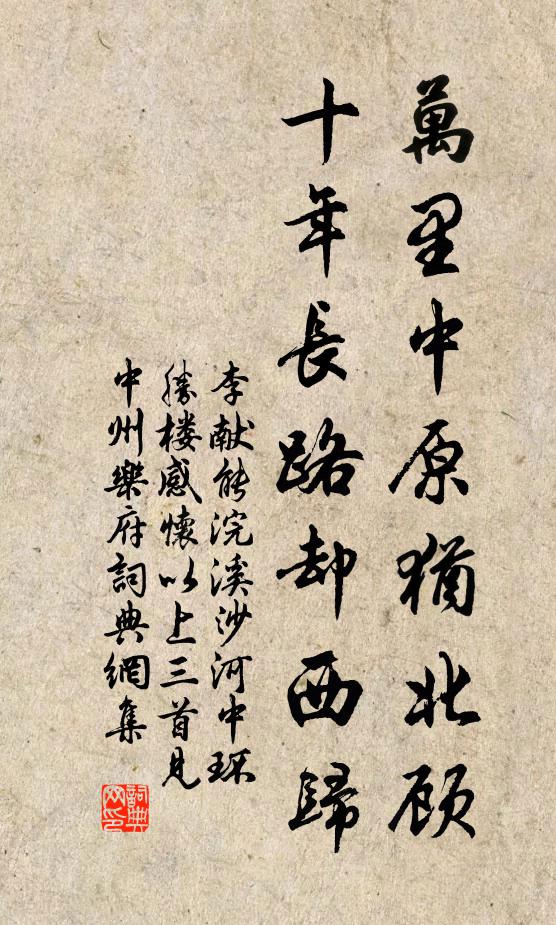 萬里中原猶北顧
十年長路却西歸
李献能浣溪沙河中环
勝楼感懷以上三首見
中州樂府詞典網集
詞典网印